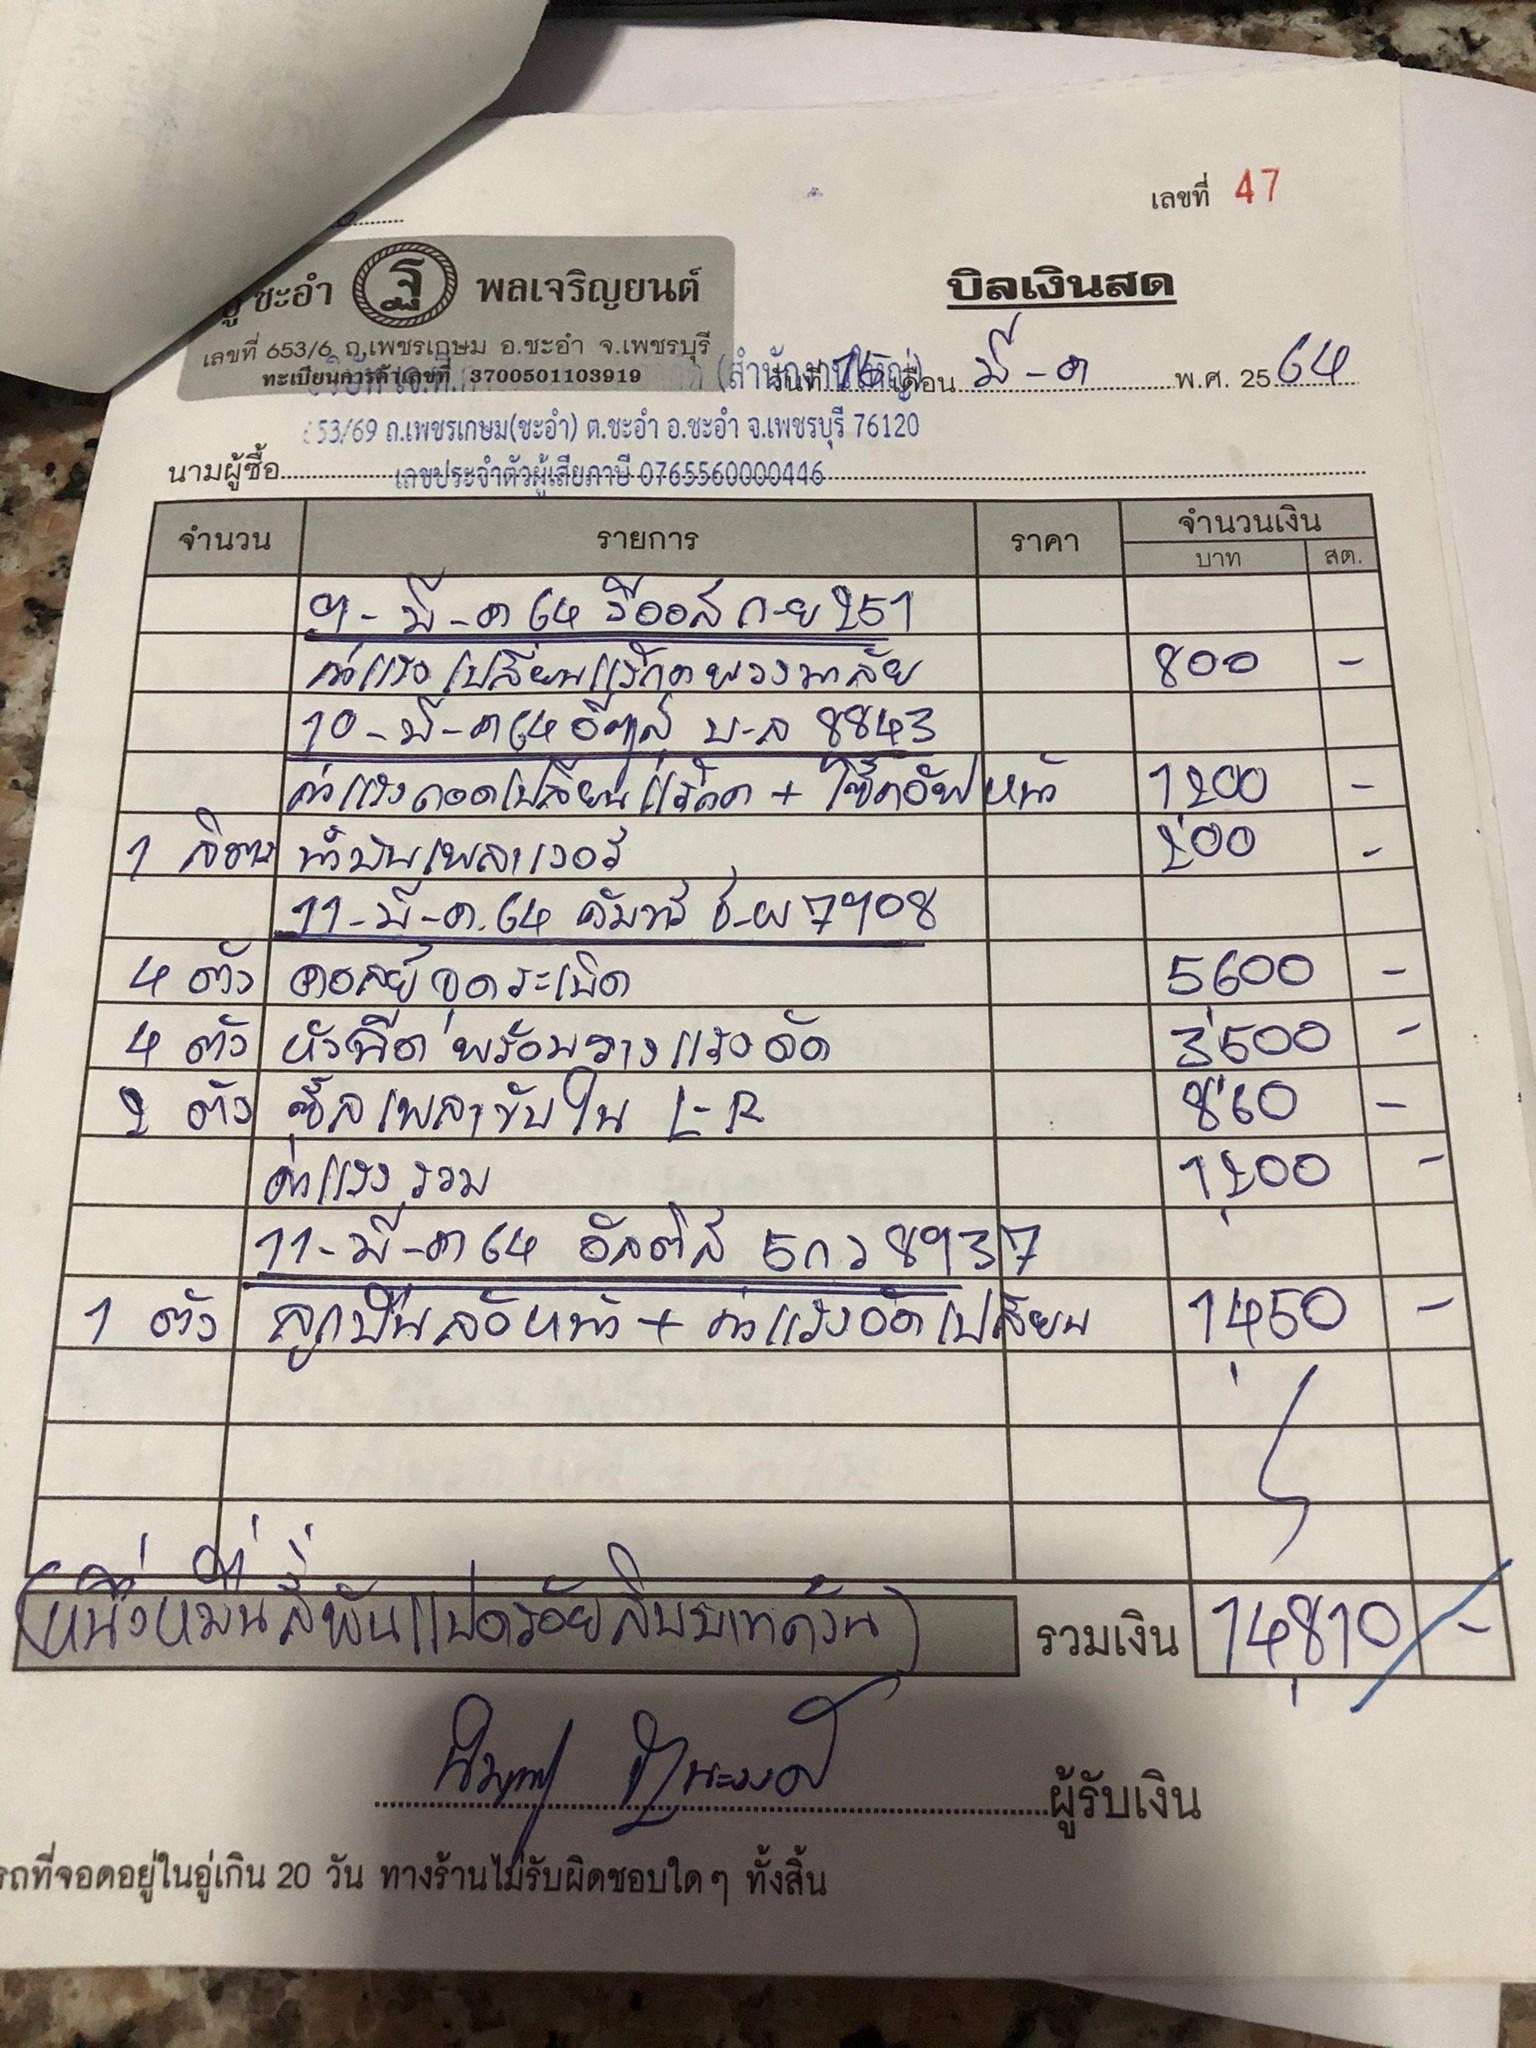 เลขที่ 47
อู่ ชะอำ ฐ พลเจริญยนต์
บิลเงินสด
เลขที่ 653/6 ถ.เพชรเกษม อ.ชะอำ จ.เพชรบุรี
ทะเบียนการค้าเลขที่ 3700501103919
(สำนักงานใหญ่)
วันที่ 16 เดือน มี-ค พ.ศ. 2564
53/69 ถ.เพชรเกษม(ชะอำ) ต.ชะอำ อ.ชะอำ จ.เพชรบุรี 76120
นามผู้ซื้อ
เลขประจำตัวผู้เสียภาษี 0765560000446
จำนวน รายการ ราคา จำนวนเงิน
บาท สต.
9-มี-ค 64 วีออส ก-ย 251
ค่าแรงเปลี่ยนแร็คพวงมาลัย 800 -
10-มี-ค 64 8843
ค่าแรงถอดเปลี่ยนแร็คค + โช๊คอัฟหน้า 1200 -
1 ลิตร น้ำมันเพาเวอร์ 200 -
11-มี-ค.64 คัมรี่ 7908
4 ตัว คอลย์จุดระเบิด 5600 -
4 ตัว หัวฉีดพร้อมรางแรงดัด 3500 -
2 ตัว ซีลเพลาขับใน L-R 860 -
ค่าแรงรวม 1200 -
11-มี-ค 64 อัลติส 5กว 8937
1 ตัว ลูกปืนล้อหน้า + ค่าแรงอัดเปลี่ยน 1450 -
(หนึ่งหมื่นสี่พันแปดร้อยสิบบาทถ้วน) รวมเงิน 14810 -
ผู้รับเงิน
รถที่จอดอยู่ในอู่เกิน 20 วัน ทางร้านไม่รับผิดชอบใดๆ ทั้งสิ้น